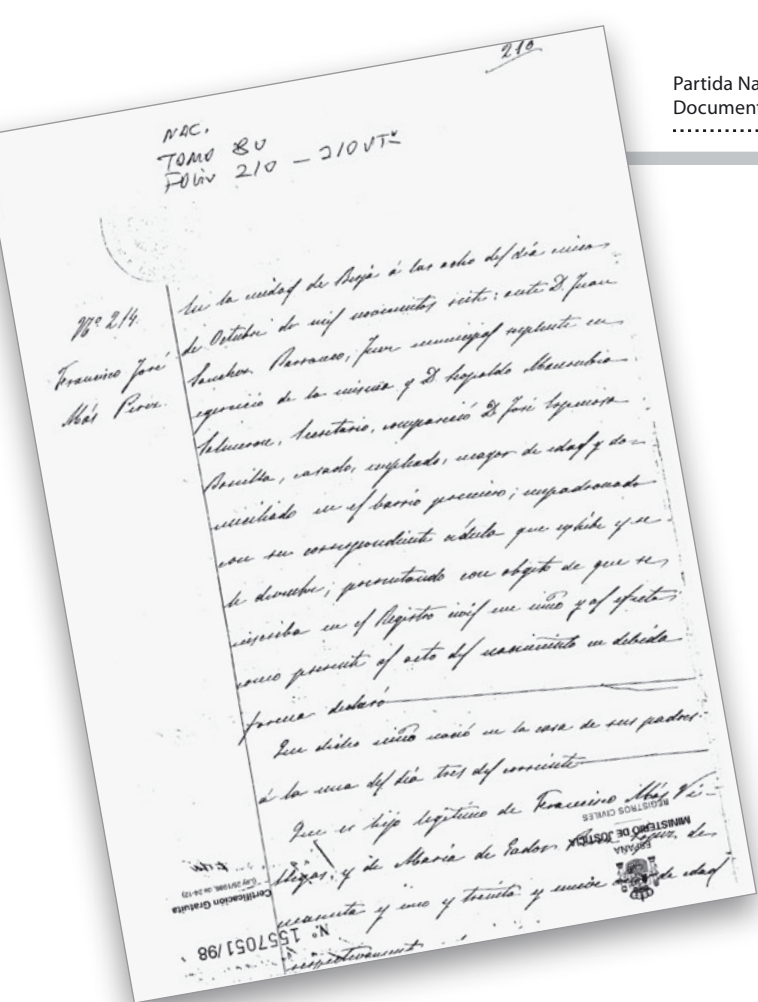 210
Partida Na
Document
NAC.
TOMO 80
FOLIO 210 – 210 VTº
Nº 214.
Francisco José
Más Perez.
En la ciudad de Berja á las ocho del día cinco
de Octubre de mil novecientos siete: ante D. Juan
Sanchez Barranco, Juez municipal suplente en
egercicio de la misma y D. Leopoldo
Salmeron, Secretario, compareció D. José Espinosa
Bonilla, casado, empleado, mayor de edad y do-
miciliado en el barrio primero; empadronado
con su correspondiente cédula que exhibe y se
le devuelve, presentando con objeto de que se
inscriba en el Registro civil un niño y al efecto
como presente al acto del nacimiento en debida
forma declaró
Que dicho niño nació en la casa de sus padres
á la una del día tres del corriente
Que es hijo legítimo de Francisco Más Vi-
llegas, y de María de Eador de
cuarenta y uno y treinta y nueve de edad
respectivamente
REGISTROS CIVILES
MINISTERIO DE JUSTICIA
ESPAÑA
(Ley 25/1986, de 24-12)
Certificación Gratuita
N.º 1557051/98